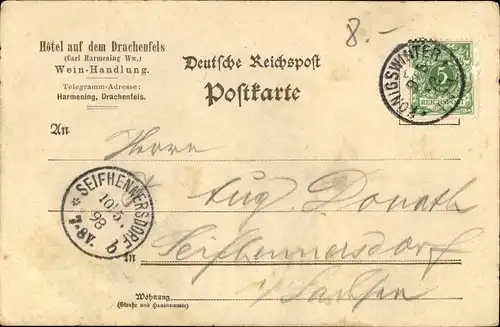 8.-
Hôtel auf dem Drachenfels
(Carl Harmening Ww.)
Wein-Handlung.
Telegramm-Adresse:
Harmening, Drachenfels.
Deutsche Reichspost
Postkarte
KÖNIGSWINTER
5
REICHSPOST
An
Herrn
Aug. Donath
SEIFHENNERSDORF
10/5.
98
7-8V.
b
in
Seifhennersdorf
i/Sachsen
Wohnung
(Straße und Hausnummer)